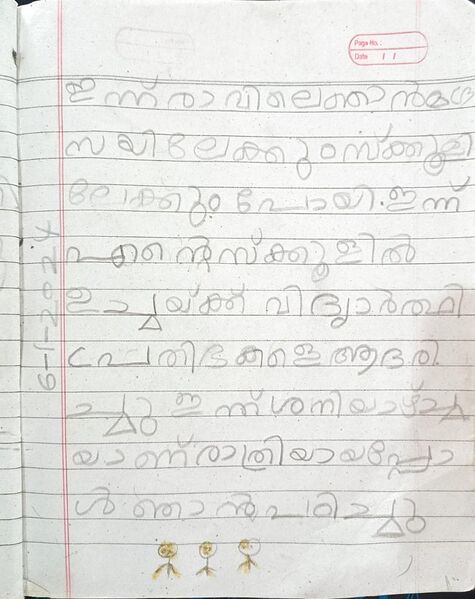 Page No.:
Date / /
ഇന്ന് രാവിലെ ഞാൻ മദ്ര
സയിലേക്കും സ്ക്കൂളി
ലേക്കും പോയി. ഇന്ന്
എന്റെ സ്ക്കൂളിൽ
ഉച്ചയ്ക്ക് വിദ്യാർത്ഥി
പ്രതിഭകളെ ആദരി
ച്ചു ഇന്ന് ശനിയാഴ്ച
യാണ് രാത്രിയായപ്പോ
ൾ ഞാൻ പഠിച്ചു
6-1-2024